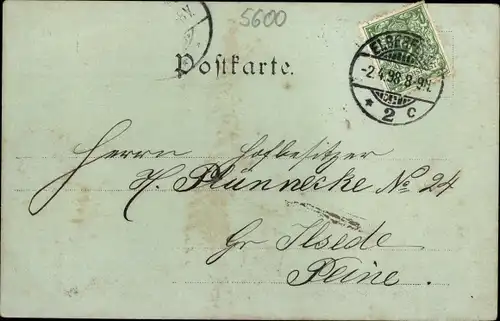 5600
Postkarte.
-2.4.98.8-9V.
* 2 c
Herrn Hofbesitzer
H. Plünnecke No 24
Gr Ilsede
Peine.